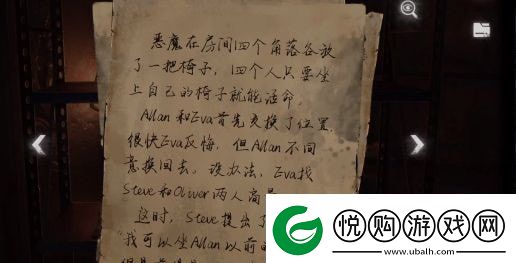 恶魔在房间四个角落各放
了一把椅子，四个人只要坐
上自己的椅子就能活命。
Allan和Eva首先交换了位置，
很快Eva反悔，但Allan不同
意换回去。没办法，Eva找
Steve和Oliver两人商量
这时，Steve提出了
"我可以坐Allan以前的
悦购游戏网
www.ubalh.com